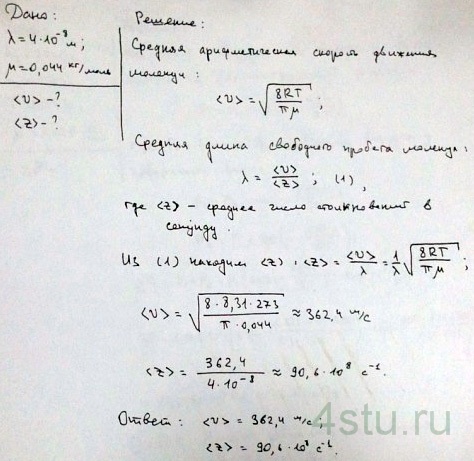 Дано:
λ = 4·10⁻⁸ м;
μ = 0,044 кг/моль
<υ> - ?
<z> - ?
Решение:
Средняя арифметическая скорость движения
молекул:
<υ> = √(8RT/πμ) ;
Средняя длина свободного пробега молекул:
λ = <υ>/<z> ; (1),
где <z> – среднее число столкновений в
секунду.
Из (1) находим <z> : <z> = <υ>/λ = 1/λ √(8RT/πμ) ;
<υ> = √(8·8,31·273/π·0,044) ≈ 362,4 м/с
<z> = 362,4/4·10⁻⁸ ≈ 90,6·10⁸ с⁻¹.
Ответ: <υ> = 362,4 м/с;
<z> = 90,6·10⁸ с⁻¹.
4stu.ru